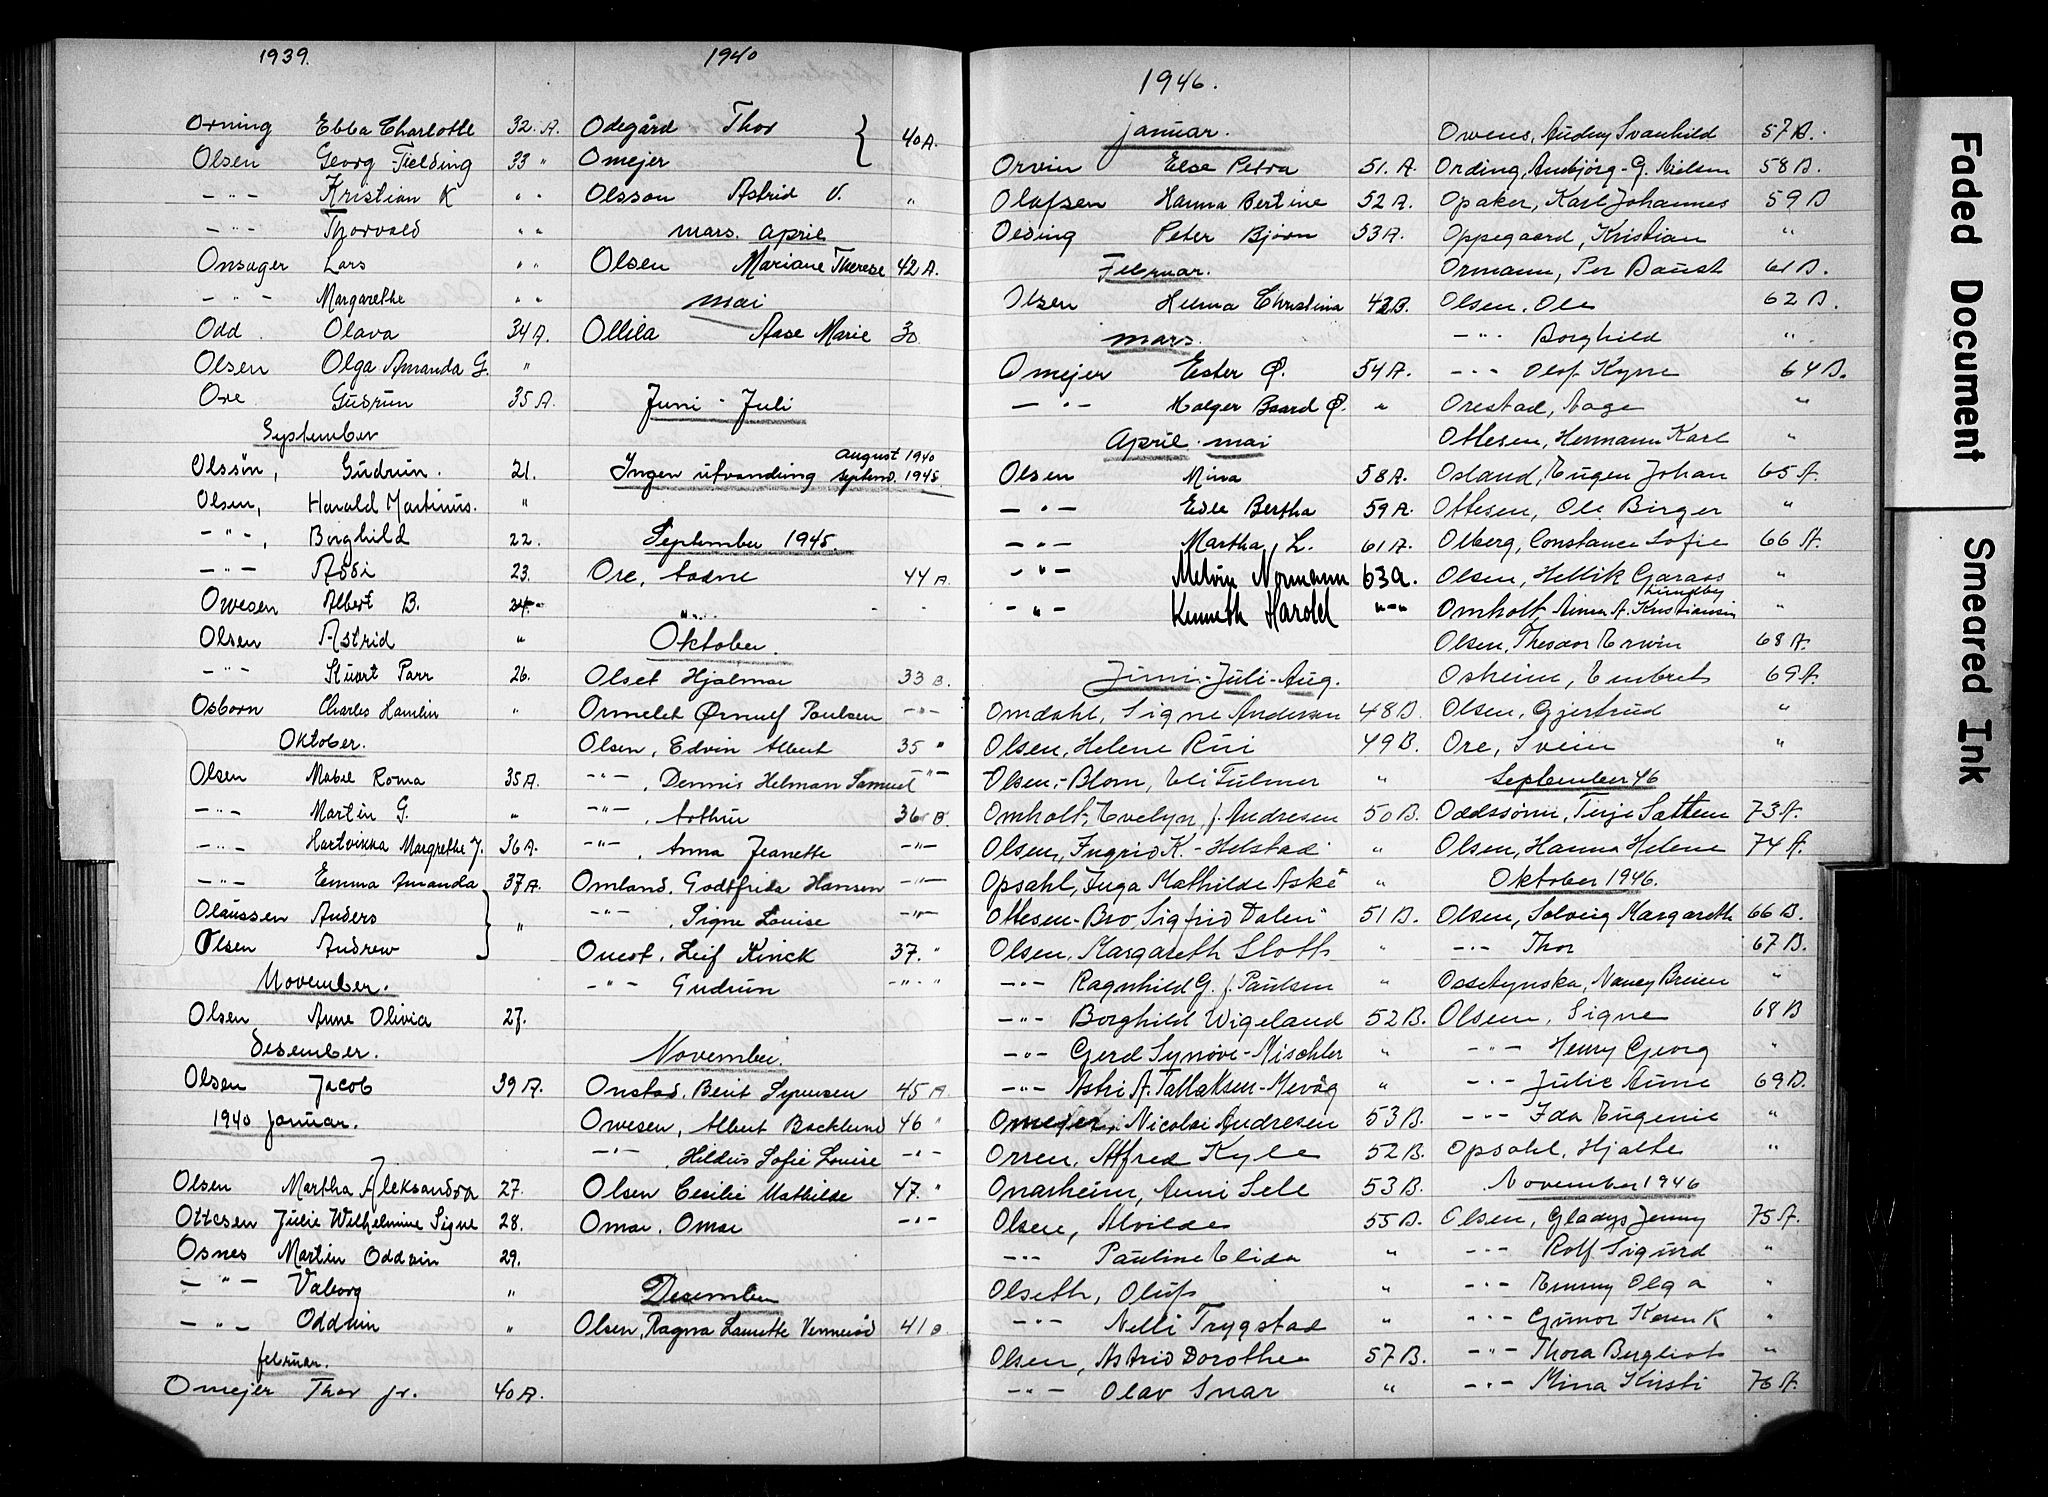 1939.
Orning Ebba Charlotte 32. A.
Olsen Georg Fielding 33 "
-"- Kristian K " "
-"- Thorvald " "
Onsager Lars " "
-"- Margarethe " "
Odd Olava 34 A.
Olsen Olga Amanda G. "
Ore Gudrun 35 A.
September
Olssön, Gudrun. 21.
Olsen, Harald Martinus. "
-"-, Borghild 22.
-"- Assi 23.
Owesen Albert B. 24.
Olsen Astrid "
-"- Stuart Parr 26.
Osborn Charles Hamlin "
Oktober.
Olsen Mabel Roma 35 A.
-"- Martin G. "
-"- Hartvikka Margrethe J. 36 A.
-"- Emma Amanda 37 A.
Olaussen Anders "
Olsen Andrew
November.
Olsen Anne Olivia 27.
Desember.
Olsen Jacob 39 A.
1940 Januar.
Olsen Martha Aleksandra 27.
Ottesen Julie Wilhelmine Signe 28.
Osnes Martin Oddvin 29.
-"- Valborg "
-"- Oddvin "
februar.
Omejer Thor jr. 40 A.
1940
Odegård Thor } 40 A.
Omejer
Olsson Astrid V. "
mars. April
Olsen Mariane Therese 42 A.
mai
Ollila Aase Marie 30
Juni - Juli
Ingen utvandring august 1940 septemb. 1945.
September 1945.
Ore, Aadne 44 A
Oktober.
Olset Hjalmar 33 B.
Ormelet Ørnulf Poulsen -"-
Olsen, Edvin Albert 35 "
-"- , Dennis Helman Samuel "-
-"- , Arthur 36 B.
-"- , Anna Jeanette -"-
Omland. Godtfrida Hansen -"-
-"- , Signe Louise -"-
Ouest, Leif Kinck 37. "
-"- Gudrun -"-
November.
Onstad. Berit Syversen 45 A
Owesen, Albert Backlund 46 "
-"- , Hildus Sofie Louise -"-
Olsen Cecilie Mathilde 47. "
Omar, Omar -"-
December
Olsen, Ragna Laurette Vermerød 41 B
1946.
januar.
Orvin Else Petra 51. A.
Olafsen Hanna Bertine 52 A.
Olsing Peter Bjørn 53 A.
Februar.
Olsen Helma Christina 42 B.
mars.
Omejer Ester Ø. 54 A.
-"- Holger Baard Ø. "
April. mai
Olsen Mina 58 A.
-"- Edle Bertha 59 A.
-"- Martha L. 61 A.
-"- Melvin Normann 63 a.
-"- Kenneth Harold "-"
Juni-Juli-Aug.
Omdahl, Signe Andersen 48 B.
Olsen, Helene Rui 49 B.
Olsen-Blom, Eli Fulmer "
Omholt, Evelyn f. Andresen 50 B.
Olsen, Ingrid K. - Helstad "
Opsahl, Inga Mathilde Aske "
Ottesen-Bro, Sigfrid Dalen 51 B.
Olsen, Margareth Sloth "
-"- Ragnhild G. f. Paulsen "
-"- Borghild Wigeland 52 B.
-"- Gerd Synöve-Mischler "
-"- Astri A. Tallaksen-Mevåg "
Omejer, Nicolai Andresen 53 B.
Orren, Alfred Kyle 52 B.
Onarheim, Anni Sele 53 B.
Olsen, Alvilde 55 B.
-"- Pauline Elida "
Olseth, Oluf "
-"- Nelli Trygstad "
Olsen, Astrid Dorothea 57 B.
-"- Olav Snar "
Owens, Audny Svanhild 57 B.
Ording, Annbjörg-G. Nielsen 58 B.
Opaker, Karl Johannes 59 B
Oppegaard, Kristian "
Ormann, Per Baust 61 B.
Olsen, Ole 62 B.
-"- Borghild "
-"- Olof Kyrre 64 B.
Orestad, Aage "
Ottesen, Hermann Karl "
Osland, Eugen Johan 65 A.
Ottesen, Ole Birger "
Olberg, Constance Sofie 66 A.
Olsen, Hellik Garaas "
Lundby
Omholt, Anna A. Kristiansen "
Olsen, Theodor Erwin 68 A.
Osheim, Embret 69 A.
Olsen, Gjertrud "
Ore, Svein "
September 46
Oddssönn, Terje Sattem 73 A.
Olsen, Hanna Helene 74 A.
Oktober 1946.
Olsen, Solveig Margareth 66 B.
-"- Thor 67 B.
Ossetynska, Nancy Breien "
Olsen, Signe 68 B
-"- Henry Georg "
-"- Julie Anne 69 B.
-"- Ida Eugenie "
Opsahl, Hjalte "
November 1946
Olsen, Gladys Jenny 75 A.
-"- Rolf Sigurd "
-"- Emmy Olga "
-"- Gunvor Karen K "
-"- Thora Bergliot "
-"- Mina Kirsti 76 A.
Faded Document
Smeared Ink